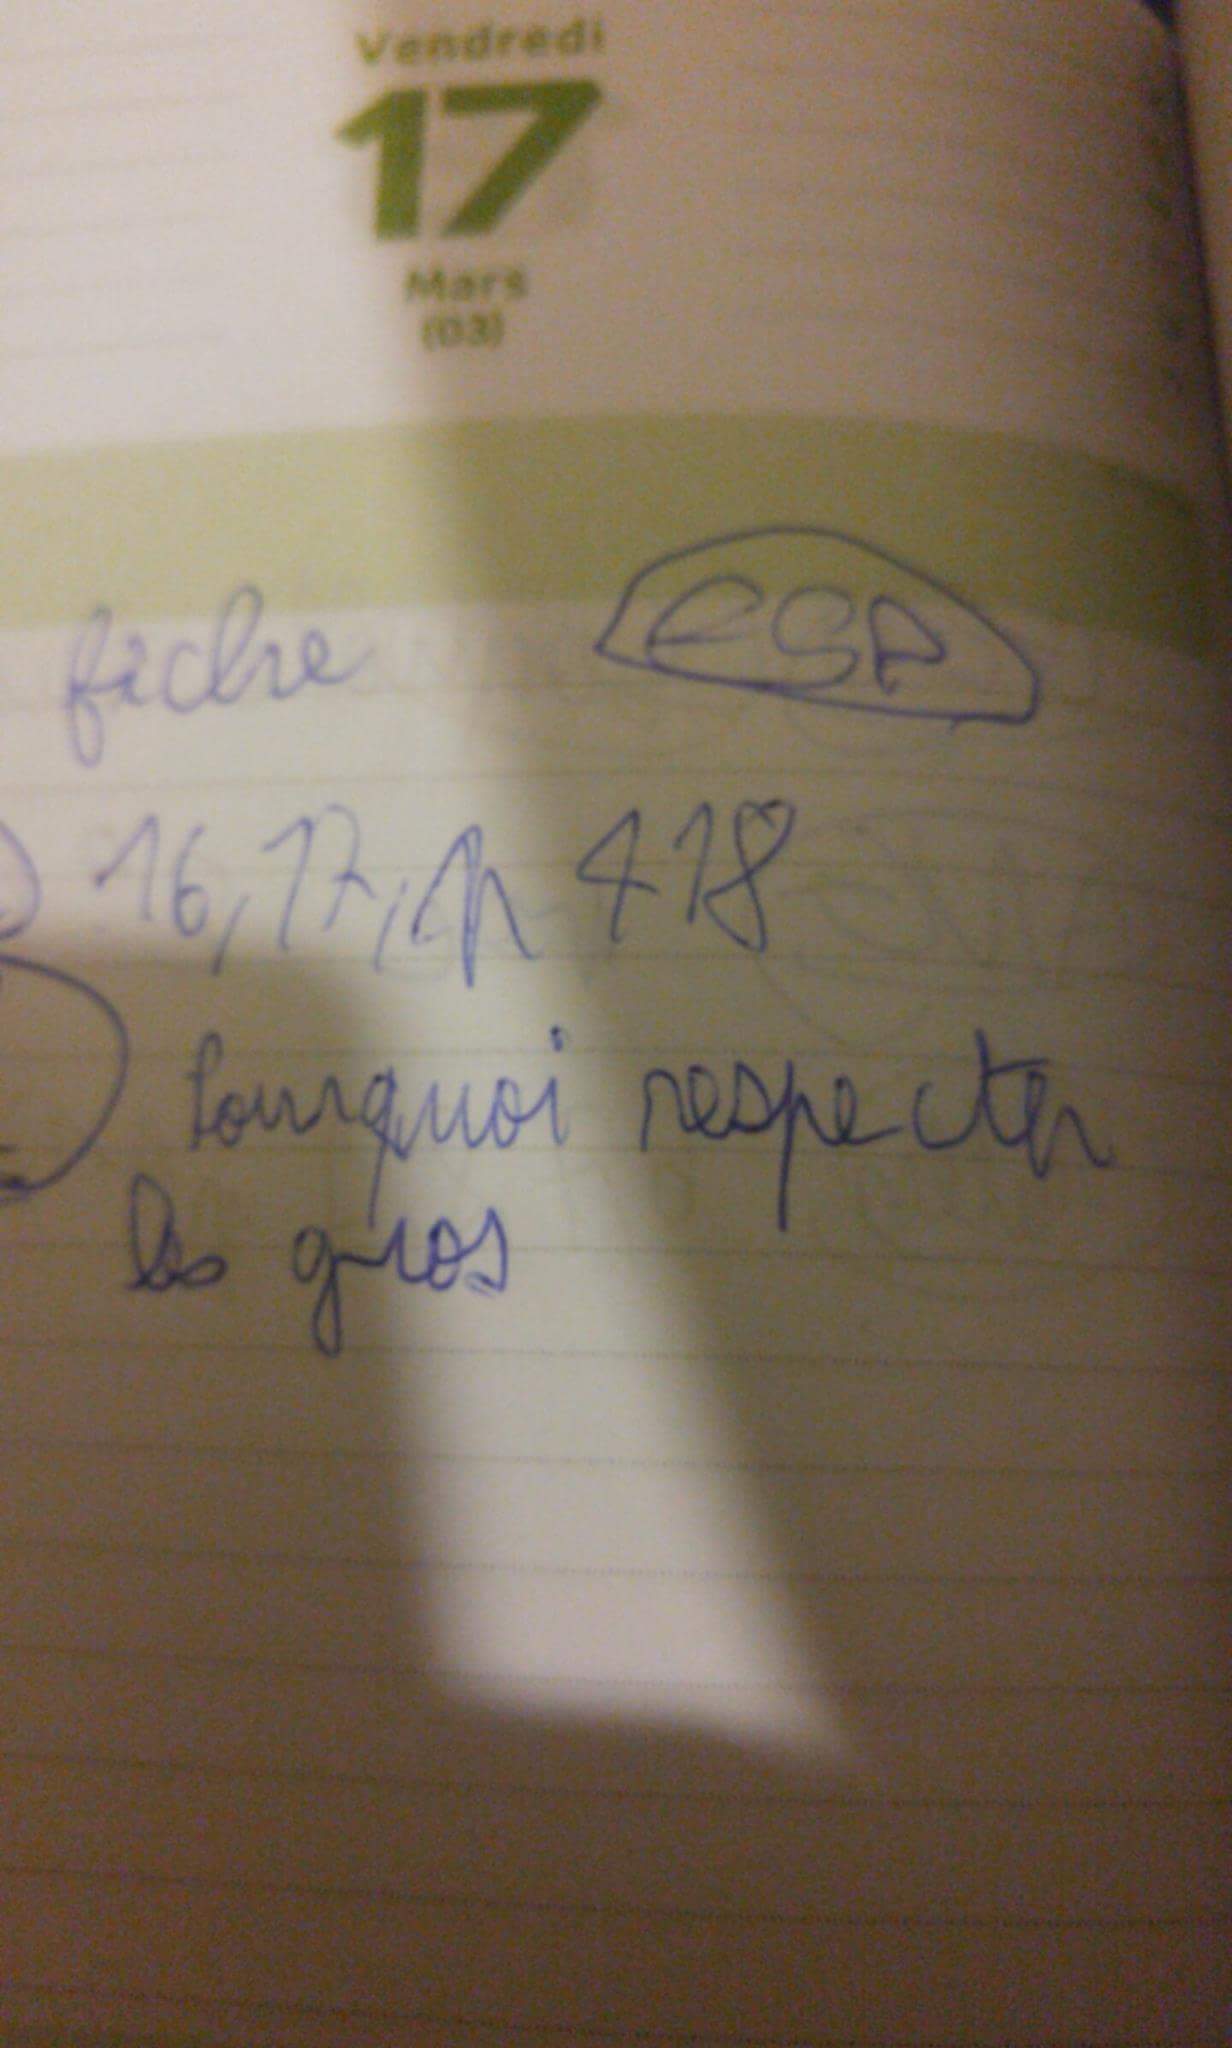 Vendredi
17
Mars
(03)
fiche esp
) 16, 17, p 418
Pourquoi respecter
les gros